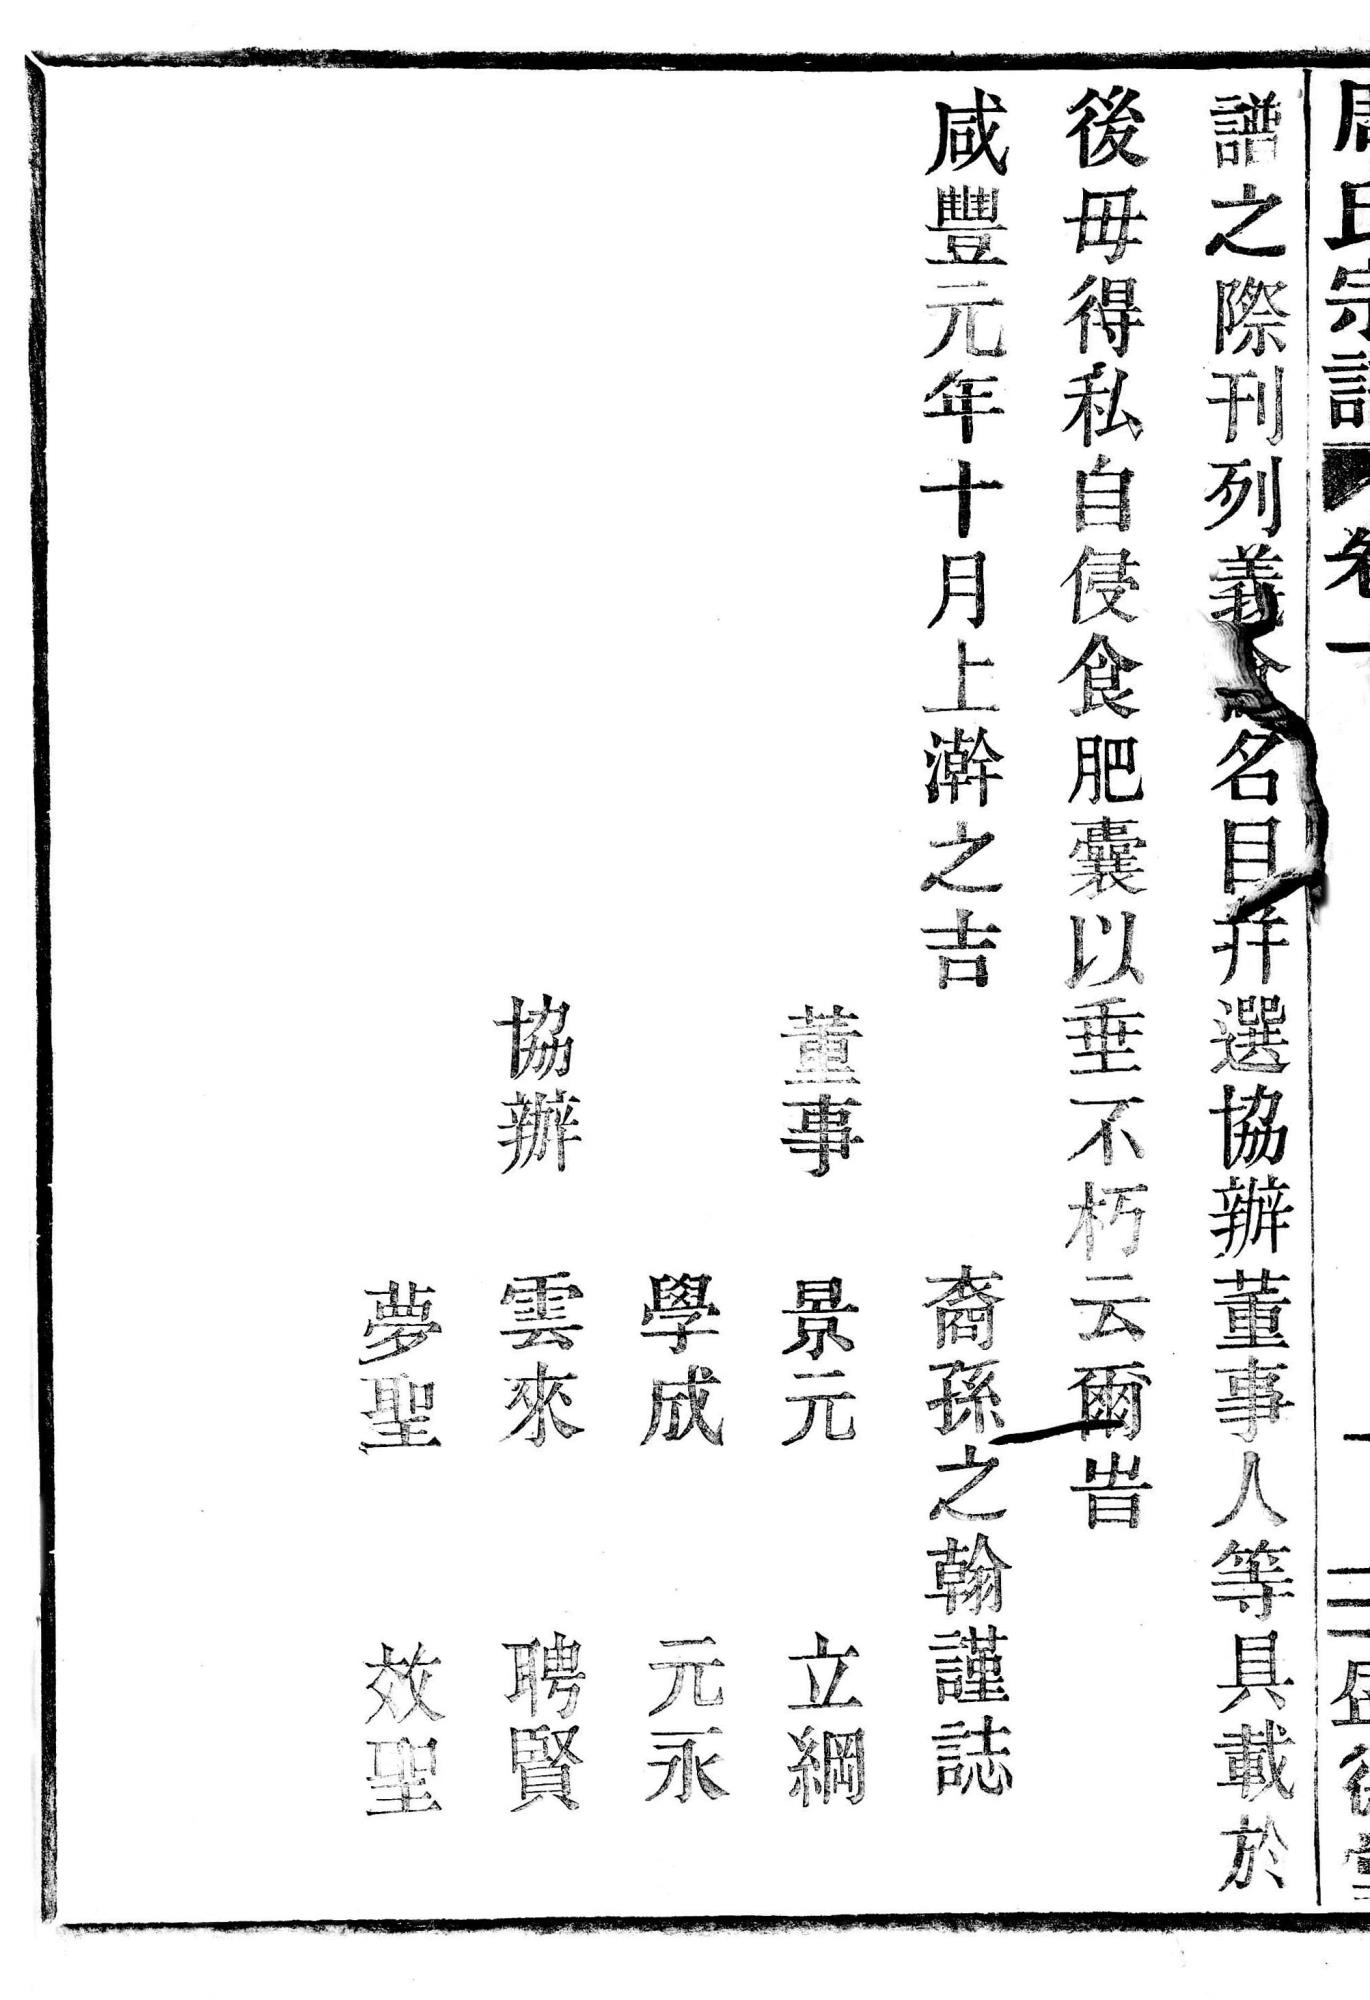 周氏宗譜 卷十 二 後堂
譜之際刊列義名目并選協辦董事人等具載於
後毋得私自侵食肥囊以垂不朽云爾旹
咸豐元年十月上澣之吉 裔孫之翰謹誌
董事 景元 立綱
學成 元永
協辦 雲來 聘賢
夢聖 效聖